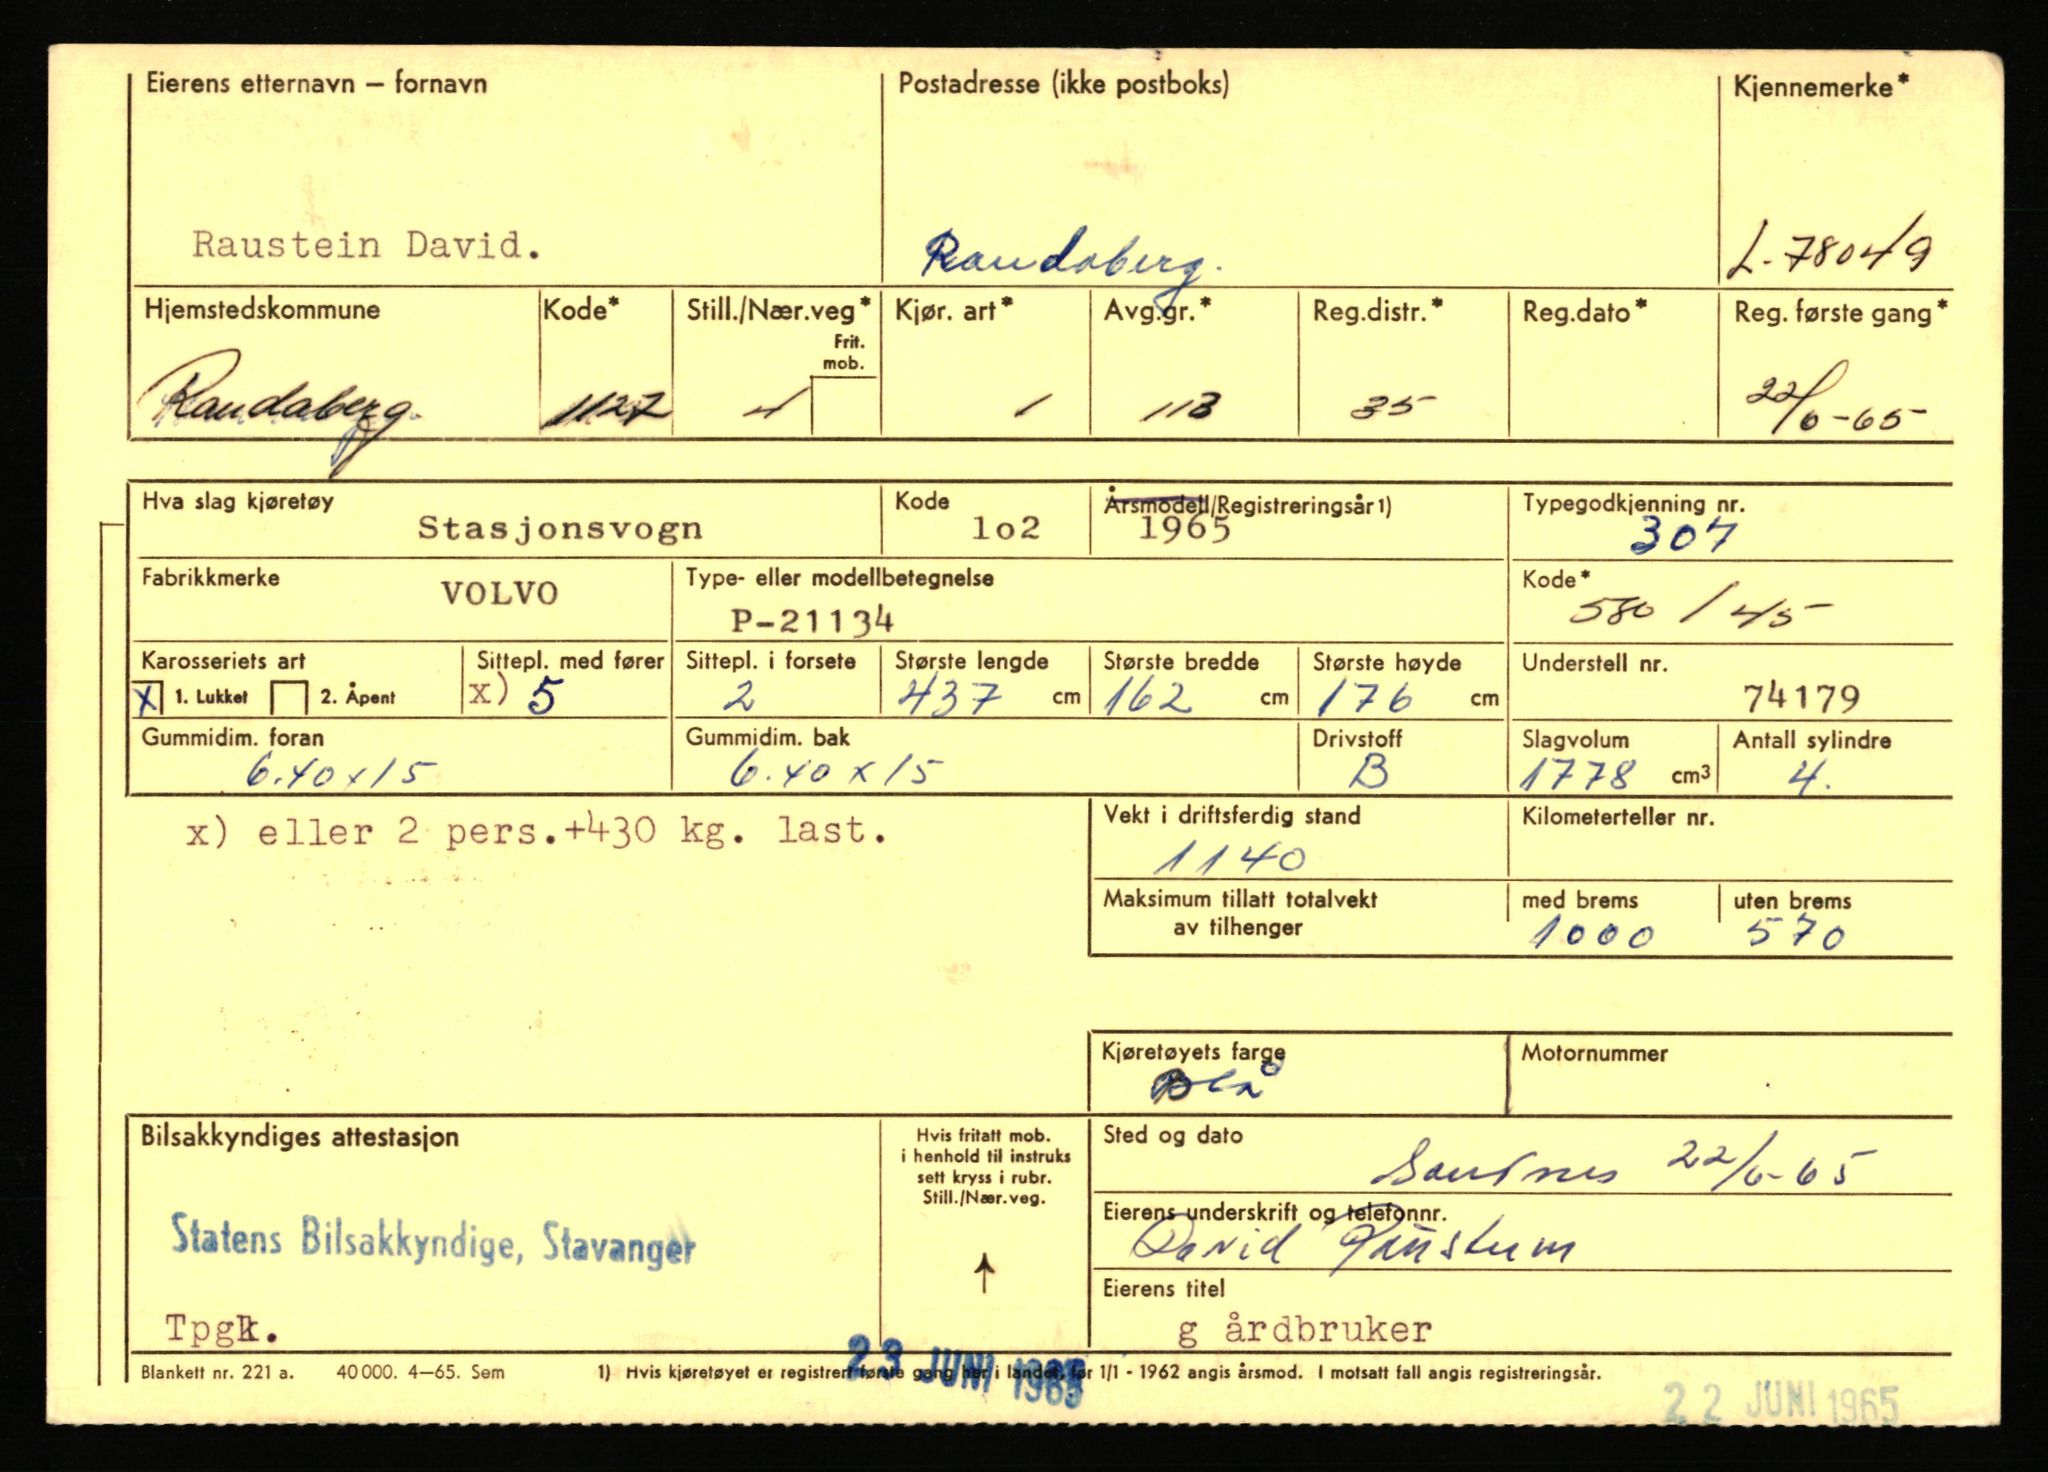 Eierens etternavn – fornavn
Postadresse (ikke postboks)
Kjennemerke*
Raustein David.
Randaberg.
L-78049
Hjemstedskommune
Kode*
Still./Nær.veg*
Frit. mob.
Kjør. art*
Avg.gr.*
Reg.distr.*
Reg.dato*
Reg. første gang*
Randaberg.
1127
4
1
113
35
22/6-65
Hva slag kjøretøy
Stasjonsvogn
Kode
1o2
Årsmodell/Registreringsår 1)
1965
Typegodkjenning nr.
307
Fabrikkmerke
VOLVO
Type- eller modellbetegnelse
P-21134
Kode*
580 / 45
Karosseriets art
X 1. Lukket 2. Åpent
Sittepl. med fører
x) 5
Sittepl. i forsete
2
Største lengde
437 cm
Største bredde
162 cm
Største høyde
176 cm
Understell nr.
74179
Gummidim. foran
6.40 x 15
Gummidim. bak
6.40 x 15
Drivstoff
B
Slagvolum
1778 cm3
Antall sylindre
4.
x) eller 2 pers.+430 kg. last.
Vekt i driftsferdig stand
1140
Kilometerteller nr.
Maksimum tillatt totalvekt
av tilhenger
med brems
1000
uten brems
570
Kjøretøyets farge
Blå
Motornummer
Bilsakkyndiges attestasjon
Statens Bilsakkyndige, Stavanger
Tpgk.
Hvis fritatt mob.
i henhold til instruks
sett kryss i rubr.
Still./Nær.veg.
Sted og dato
Sandnes 22/6-65
Eierens underskrift og telefonnr.
David Raustein
Eierens titel
g årdbruker
23 JUNI 1965
Blankett nr. 221 a. 40 000. 4–65. Sem
1) Hvis kjøretøyet er registrert første gang her i landet før 1/1 - 1962 angis årsmod. I motsatt fall angis registreringsår.
22 JUNI 1965